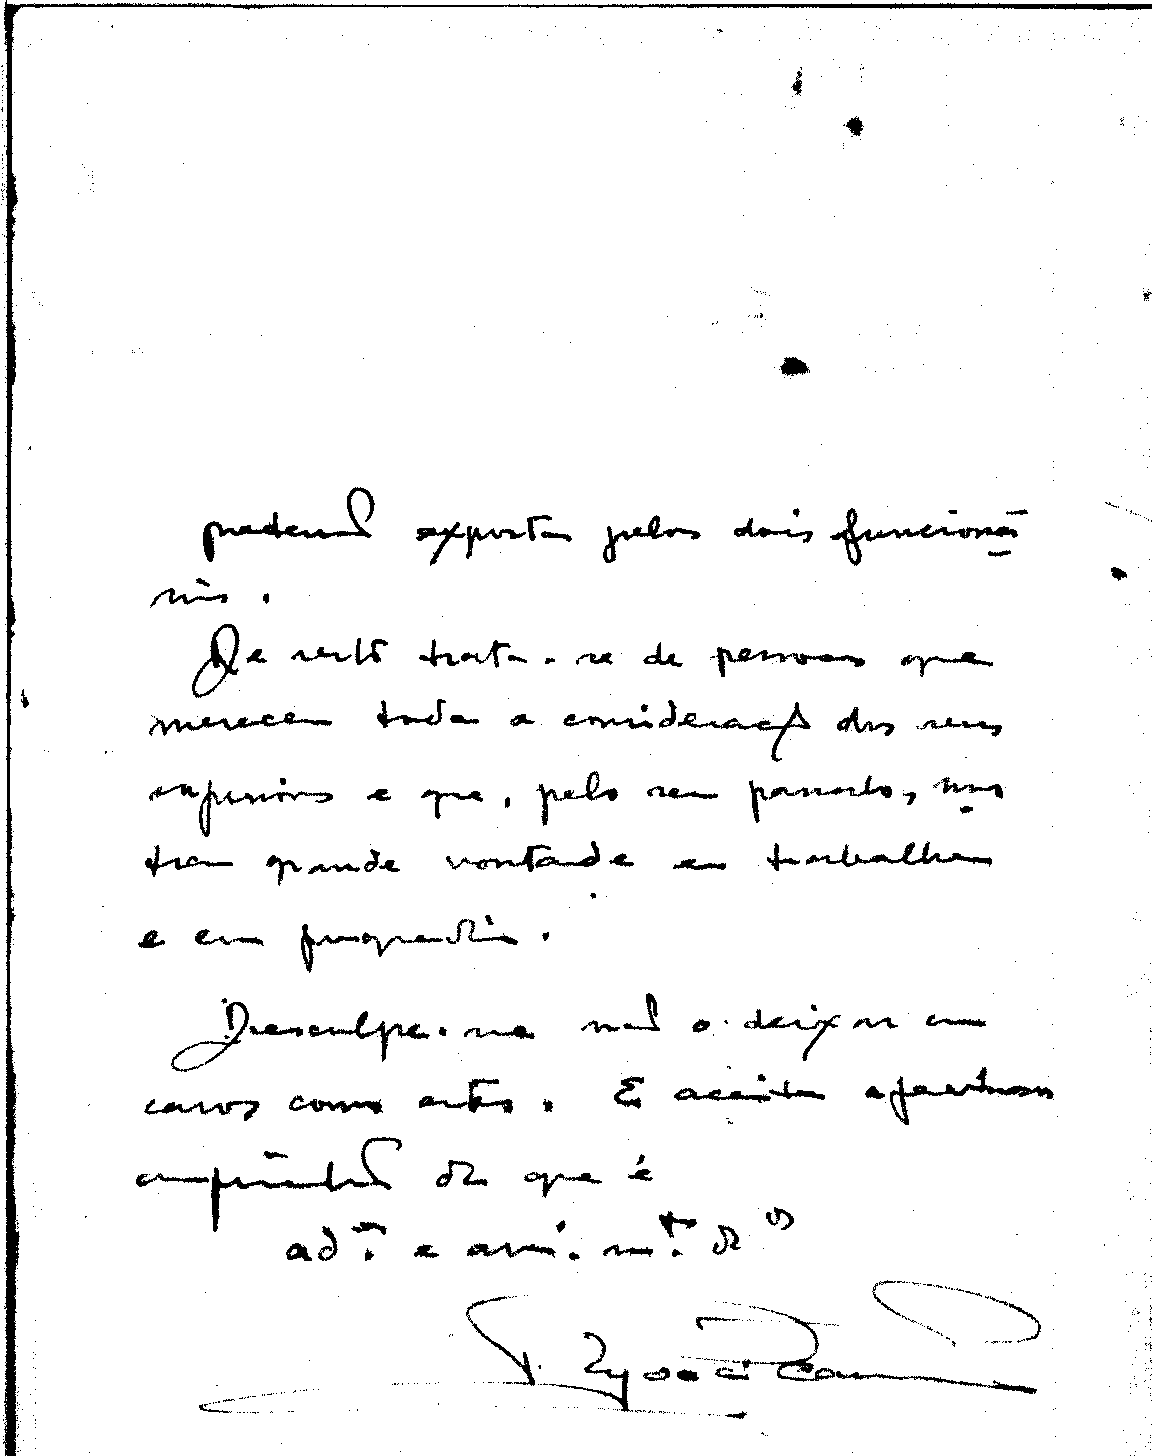 pretensão exposta pelos dois funcioná
rios.
De resto trata-se de pessoas que
merecem toda a consideração dos seus
superiores e que, pelo seu passado, mos
tram grande vontade em trabalhar
e em progredir.
Desculpe-me não o deixar em
casos como estes. E aceite afectuosos
cumprimentos de que é
ad.or e am.o m.to